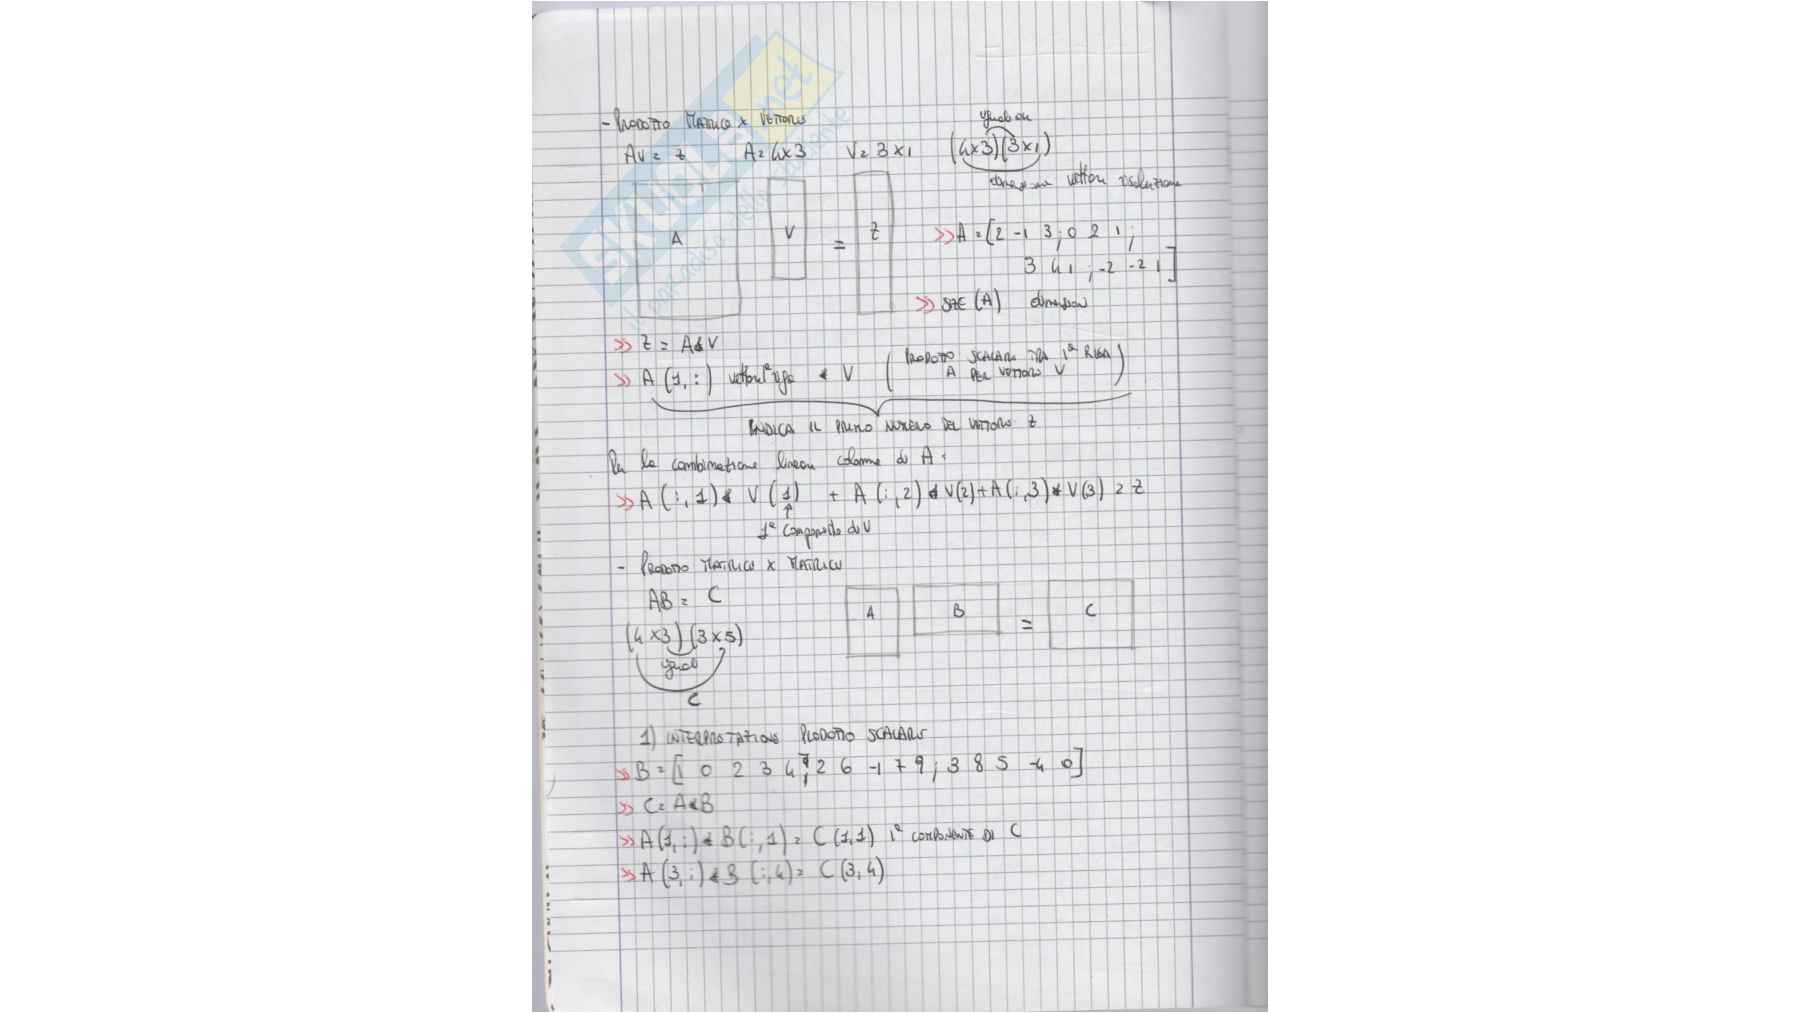 - PRODOTTO MATRICE X VETTORE
Av = z A = 4x3 V = 3x1 (4x3)(3x1)
uguali
dimensione vettore soluzione
A V = Z
>> A = [2 -1 3; 0 2 1;
3 4 1; -2 -2 1]
>> SIZE (A) dimensioni
>> Z = A*V
>> A (1,:) vettore 1ª riga * V (PRODOTTO SCALARE TRA 1ª RIGA
A PER VETTORE V)
INDICA IL PRIMO NUMERO DEL VETTORE Z
Per la combinazione lineare colonne di A:
>> A (:,1) * V (1) + A (:,2) * V(2) + A(:,3) * V(3) = Z
1ª componente di V
- PRODOTTO MATRICE X MATRICE
AB = C
A B = C
(4x3)(3x5)
uguali
C
1) INTERPRETAZIONE PRODOTTO SCALARE
>> B = [1 0 2 3 4; 2 6 -1 7 9; 3 8 5 -4 0]
>> C = A*B
>> A(1,:) * B(:,1) = C (1,1) 1ª COMPONENTE DI C
>> A (3,:) * B (:,4) = C (3,4)
SKUOLA.net
il paradiso dello studente